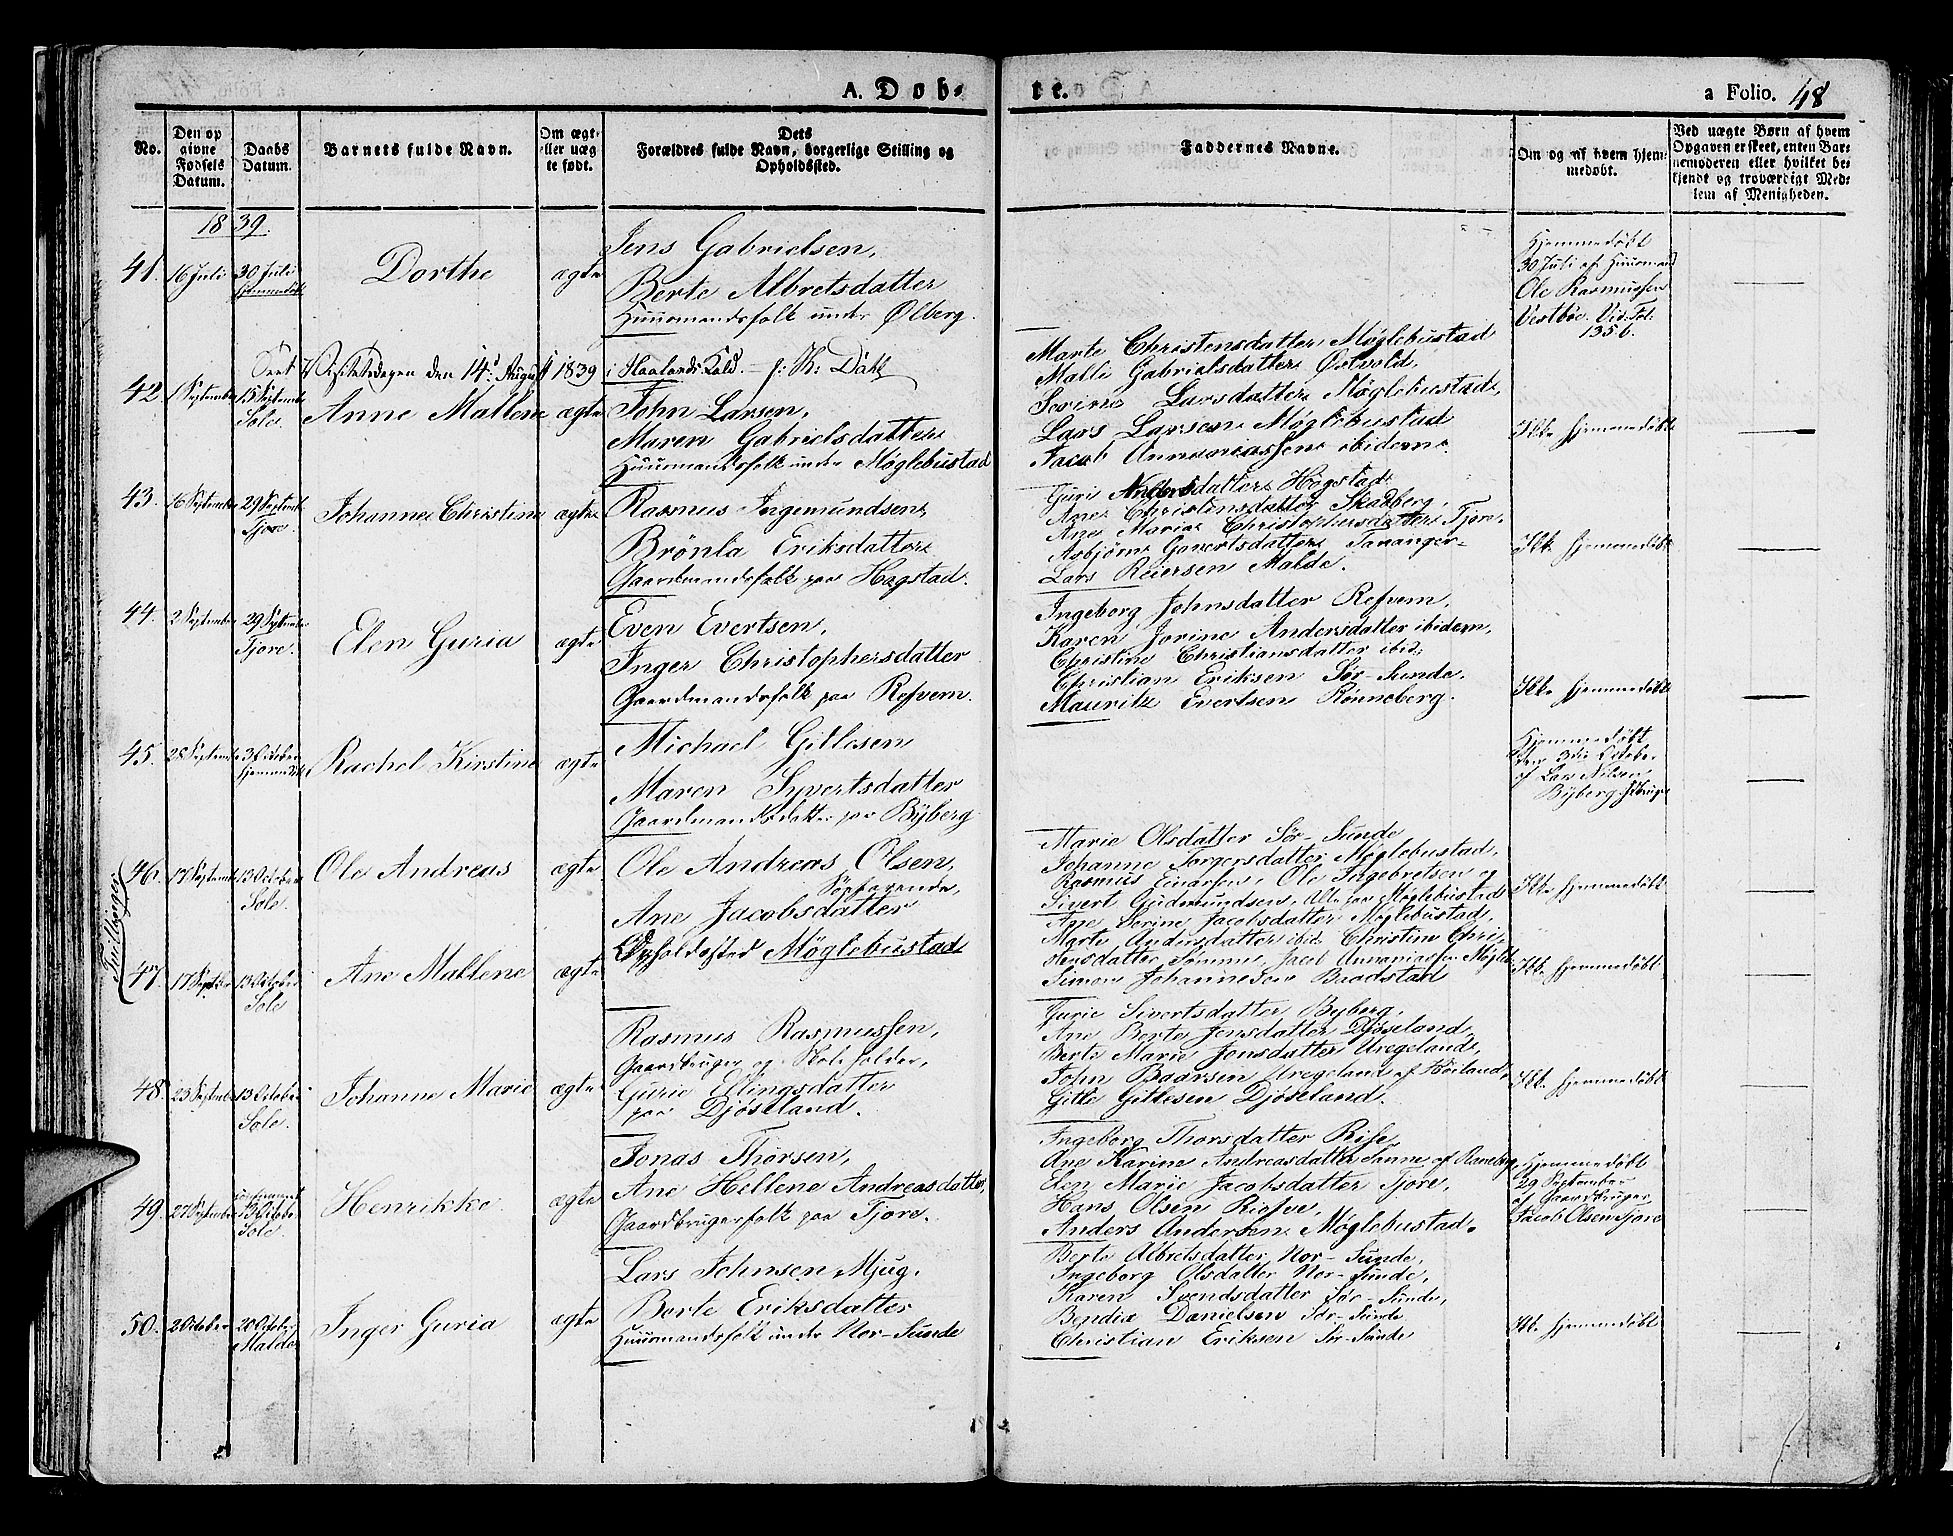 A. Døb-
te.
a Folio. 48
No.
Den opgivne Fødsels Datum.
Daabs Datum.
Barnets fulde Navn.
Om ægte eller uægte født.
Dets Forældres fulde Navn, borgerlige Stilling og Opholdssted.
Faddernes Navne.
Om og af hvem hjemmedøbt.
Ved uægte Børn af hvem Opgaven er skeet, enten Barnemoderen eller hvilket bekjendt og troværdigt Medlem af Menigheden.
1839.
41. 16 Juli 30 Juli hjemmedøbt Dorthe ægte
Jens Gabrielsen,
Berte Albretsdatter
Huusmandsfolk under Ølberg.
Hjemmedøbt
30 Juli af Huusmand
Ole Rasmussen
Vestbøe. Vid. Fol.
135 b.
Seet Visitatsdagen den 14d August 1839 i Haalands Kald. J: K: Dahl
42 1 September 15 September Sole. Anne Mallene ægte
John Larsen,
Maren Gabrielsdatter
Huusmandsfolk under Møglebustad
Marte Christensdatter Møglebustad
Malli Gabrielsdatter Østvold,
Serine Larsdatter Møglebustad,
Lars Larsen Møglebustad
Jacob Annaniassen ibidem.
Ikke hjemmedøbt
43. 16 September 29 September Tjore. Johanne Christine ægte
Rasmus Ingemundsen
Brönla Eriksdatter
Gaardmandsfolk paa Hagstad.
Guri Andersdatter Hogstad
Ane Christensdatter Skadberg,
Ane Maria Christophersdatter Tjore,
Asbjørn Govertsdatter Tananger
Lars Reiersen Malde.
Ikke hjemmedøbt
44. 2 September 29 September Tjore. Elen Guria ægte
Even Evertsen,
Inger Christophersdatter
Gaardmandsfolk paa Refvem.
Ingeborg Johnsdatter Refvem,
Karen Jorine Andersdatter ibidem,
Christine Christiansdatter ibid,
Christian Eriksen Sør-Sunde,
Mauritz Evertsen Rönneberg.
Ikke hjemmedøbt
45. 28 September 3 October hjemmedøbt Rachel Kirstine ægte
Michael Gitlesen
Maren Syvertsdatter
Gaardmandsfolk paa Byberg
Hjemmedøbt
den 3die October
af Lars Nilsen,
Byberg
Tvillinger
46. 17 September 13 October Sole. Ole Andreas ægte
Ole Andreas Olsen,
Søefarende,
Ane Jacobsdatter
Opholdssted Møglebustad
Marie Olsdatter Sør-Sunde
Johanne Torgersdatter Møglebustad,
Rasmus Einarsen, Ole Ingebretsen og
Sivert Gudmundsen, Alle paa Møglebustad
Ikke hjemmedøbt
47. 17 Septbr 13 October Sole Ane Mallene ægte
Ane Serine Jacobsdatter Møglebustad,
Marte Andersdatter ibid Christine Chri-
stensdatter Sømme, Jacob Annaniassen Møgleb.
Simon Johannesen Baadstad
Ikke hjemmedøbt
48. 23 September 13 October Sole. Johanne Marie ægte
Rasmus Rasmussen,
Gaardbruger og Skoleholder,
Gurie Elingsdatter
paa Djöseland.
Gurie Sivertsdatter Byberg,
Ane Berte Jonsdatter Djöseland,
Berte Marie Jonsdatter Uregeland,
John Baarsen Uregeland af Höiland,
Gitle Gitlesen Djöseland.
Ikke hjemmedøbt
49. 27 September 13 October Sole. Henrikke ægte
Jonas Thorsen,
Ane Hellene Andreasdatter,
Gaardbrugerfolk paa Tjore.
Ingeborg Thorsdatter Rise,
Ane Karine Andreasdatter Sanne af Raneberg
Elen Marie Jacobsdatter Tjore,
Hans Olsen
Anders Andersen Møglebustad.
Hjemmedøbt
29 September
af Gaardbruger
Jacob Olsen Tjore
50. 2 October 20 October Malde Inger Guria ægte
Lars Johnsen Mjug.
Berte Eriksdatter
Huusmandsfolk under Nor-Sunde
Berte Albretsdatter Nor-Sunde,
Ingeborg Olsdatter Nor-Sunde,
Karen Svendsdatter Sør-Sunde,
Bendix Danielsen Sør-Sunde
Christian Eriksen Sør-Sunde
Ikke hjemmedøbt